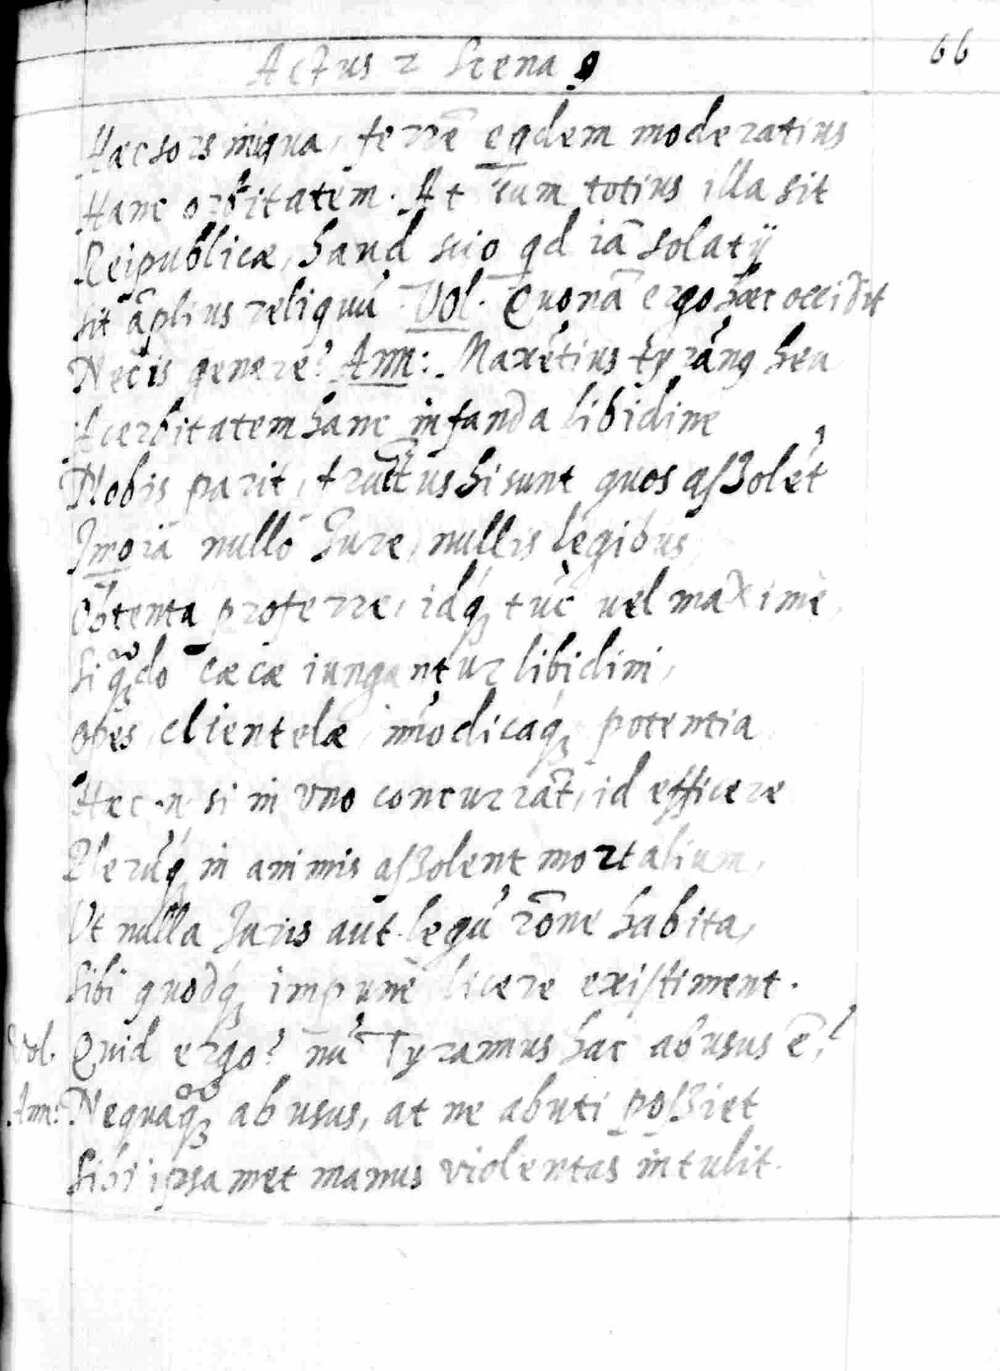 Actus 2 Scena 9
66
Hæc sors iniqua, ferrē eqdem moderatius
Hanc orbitatem. At cum totius illa sit
Reipublicæ, haud scio qd iā solatij
Sit āplius reliquū. Vol. Quonā ergo hæc occidit
Necis genere? Ann: Maxētius tyrāng heu
Acerbitatem hanc infanda libidine
Nobis parit, fructus hi sunt quos aſsolēt
Imꝑia nullo Iure, nullis legibus
Obtenta proferre, idq; tūc vel maximè,
Si qādo cæcæ iungantur libidini,
Opes, clientelæ, imodicaq; potentia
Hæc .n. si in vno concurrāt, id efficere
Plerūq; in animis aſsolent mortalium,
Vt nulla Iuris aut legū rōne habita,
Sibi quodq; impunè licere exiſtiment.
Vol. Quid ergo? nū Tyrannus hac abusus ē?
Ann: Nequaq̄; abusus, at ne abuti poſsiet
Sibi ipsamet manus violentas intulit.